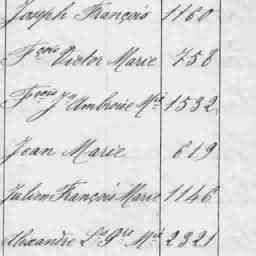 Joseph François 1160
Fçois Victor Marie 758
Fçois Jn Ambroise Mie 1532
Jean Marie 619
Julien François Marie 1146
Alexandre Ls Mie 2321